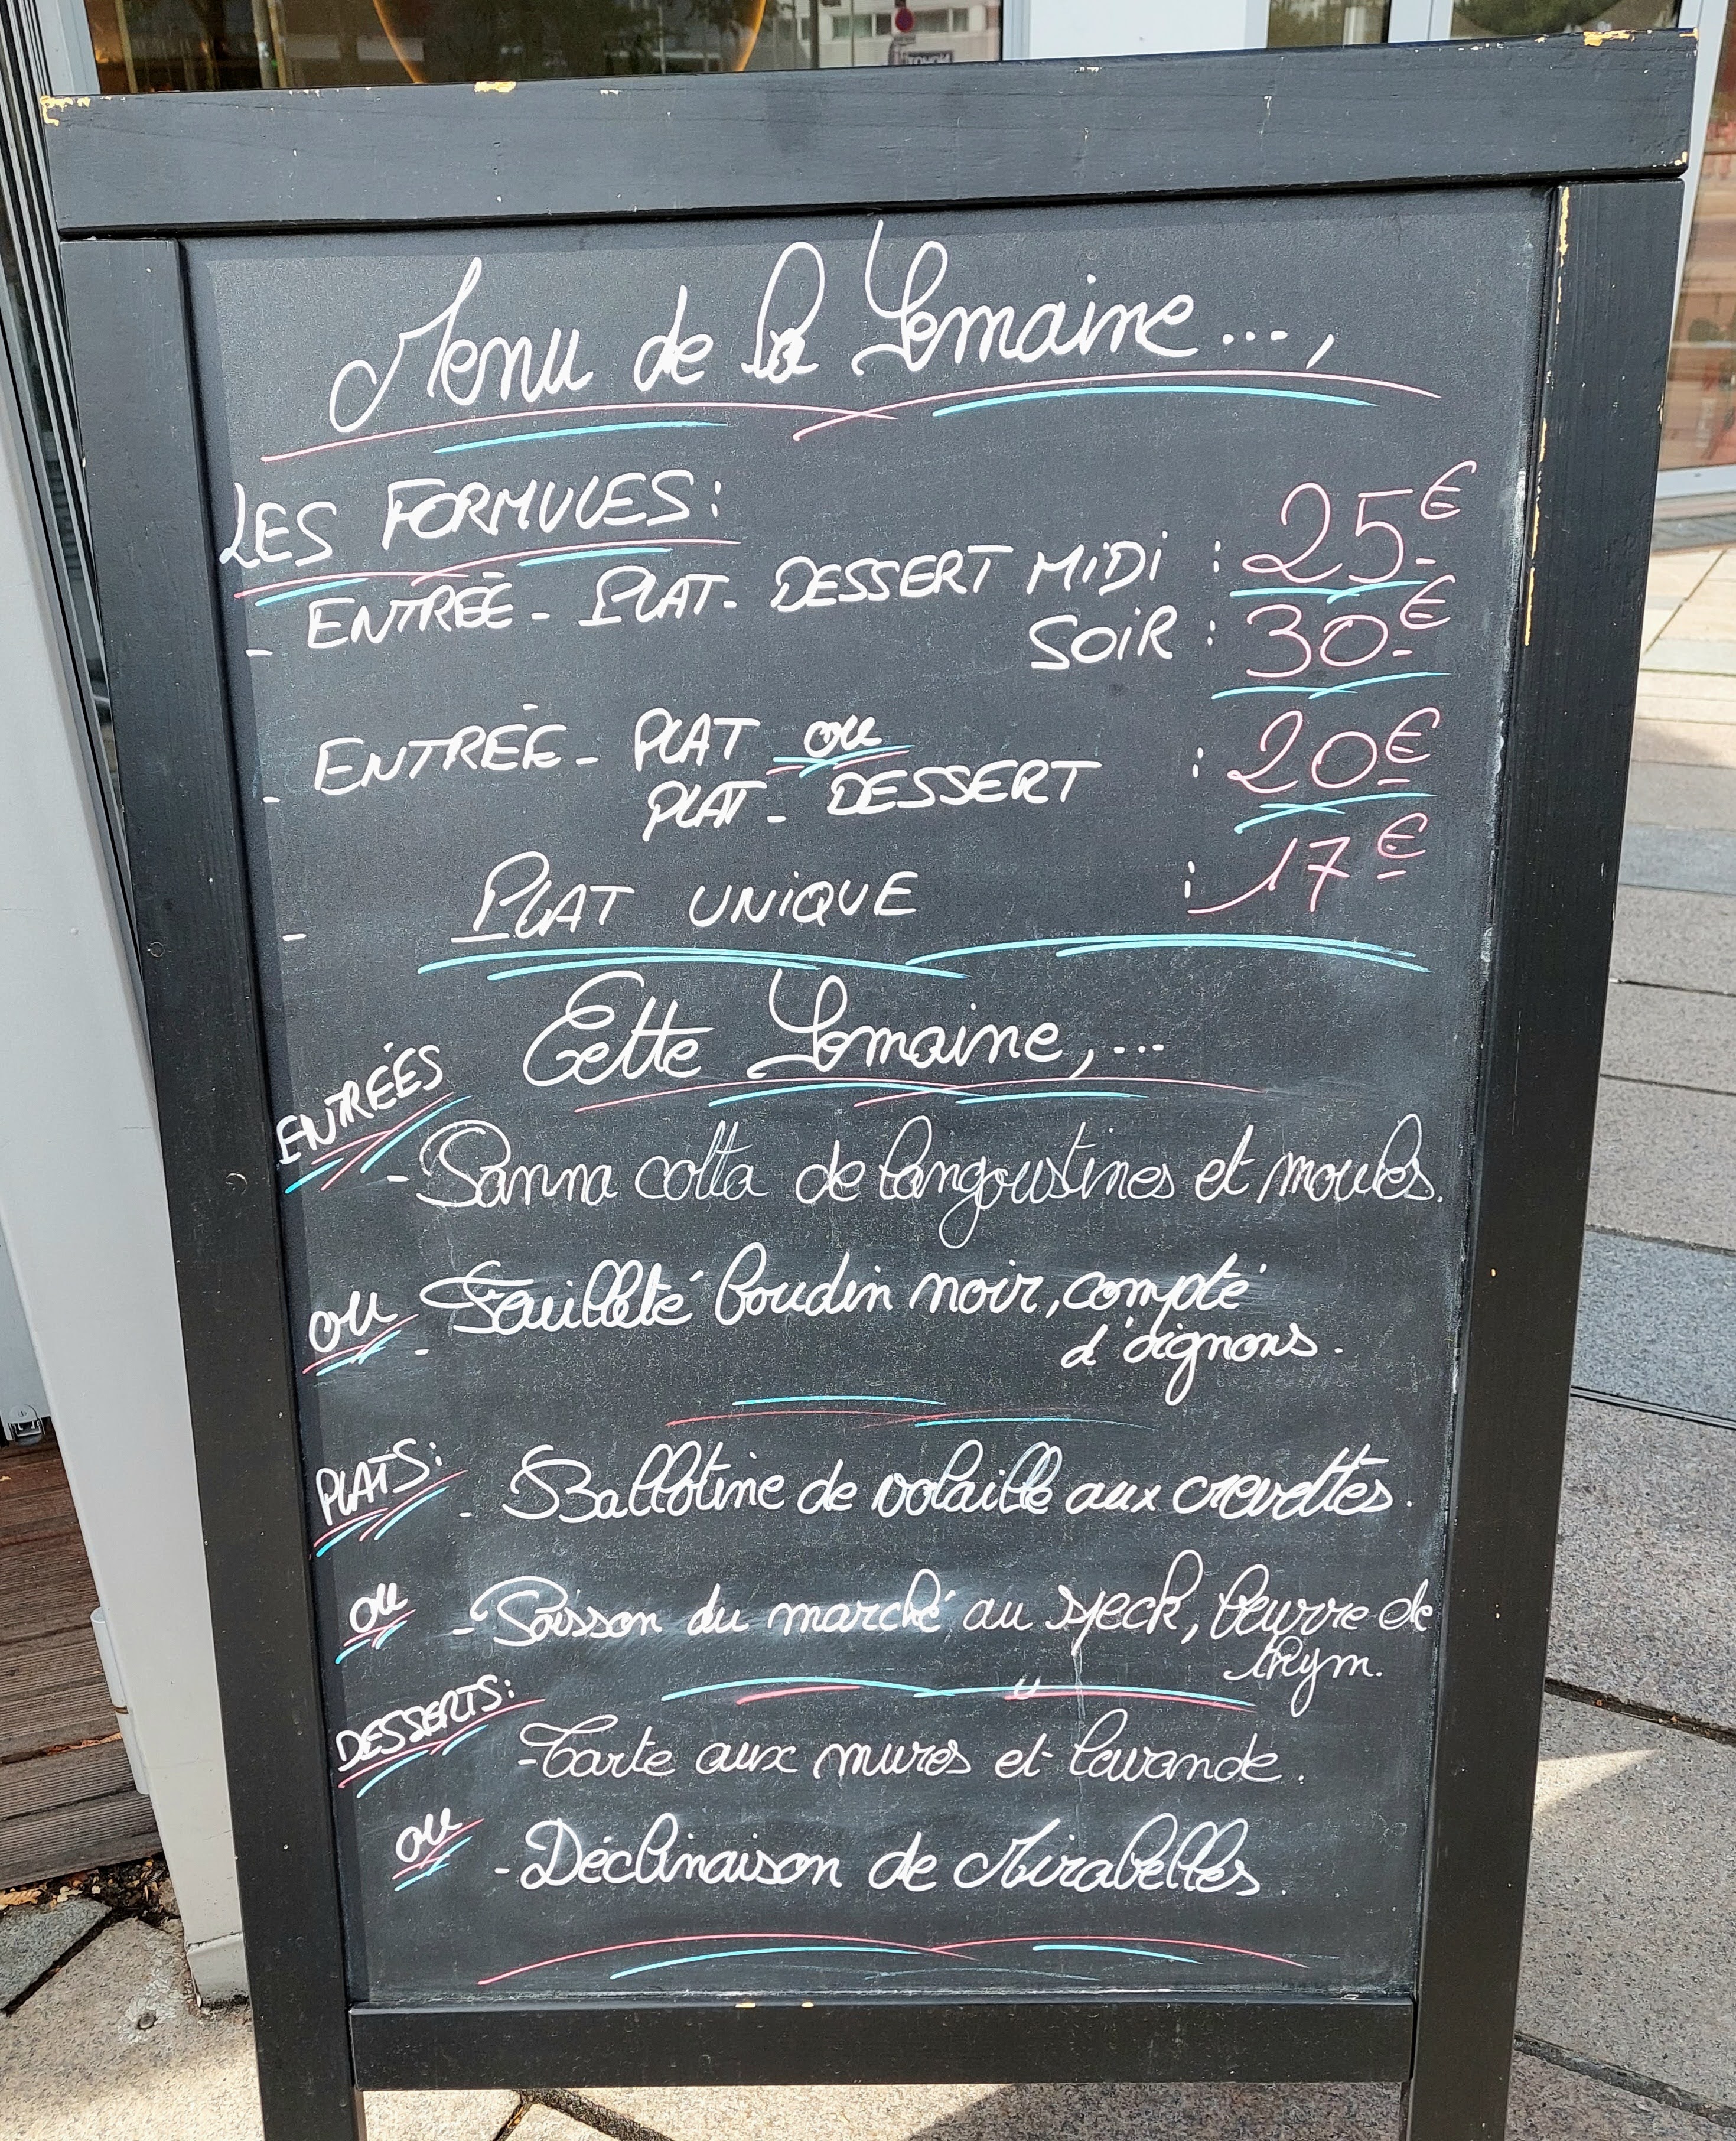 Menu de la Semaine...,
LES FORMULES:
- ENTRÉE - PLAT - DESSERT MIDI : 25€
SOIR : 30€
- ENTRÉE - PLAT ou : 20€
PLAT - DESSERT
- PLAT UNIQUE : 17€
Cette Semaine,...
ENTRÉES
- Panna cotta de langoustines et moules.
ou - Feuilleté boudin noir, compté
d'oignons.
PLATS:
- Ballotine de volaille aux crevettes.
ou - Poisson du marché au speck, beurre de
thym.
DESSERTS:
- Tarte aux mures et lavande.
ou - Déclinaison de Mirabelles.